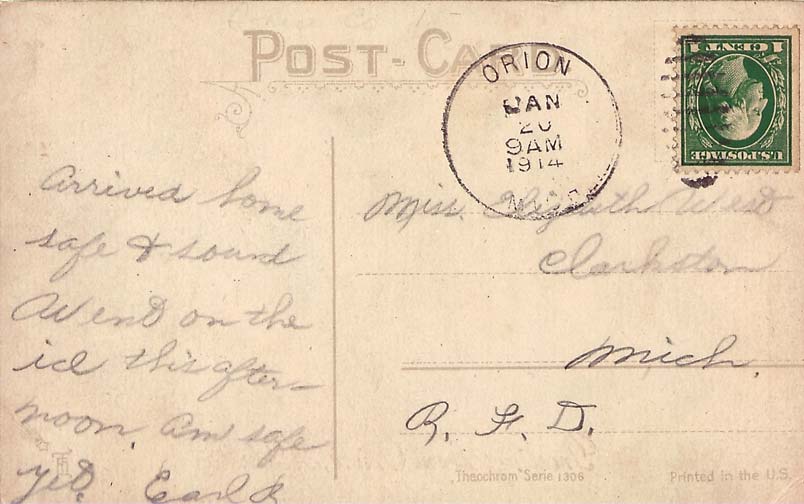 POST-CARD
ORION
JAN
20
9AM
1914
MICH
1 CENT 1
U.S. POSTAGE
Arrived home
safe & sound
Went on the
ice this after-
noon. Am safe
yet. Earl R
Miss. Elizabeth West
Clarkston
Mich.
R. F. D.
"Theochrom" Serie 1306
Printed in the U.S.